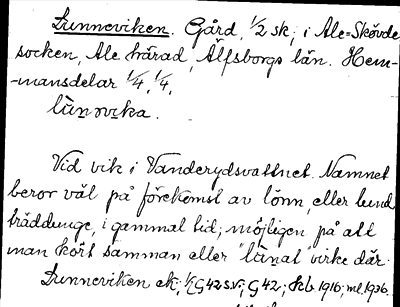 Lunneviken. Gård, 1/2 sk; i Ale=Skövde
socken, Ale härad, Älfsborgs län. Hem-
-mansdelar 1/4, 1/4.
lùnovika.
Vid vik i Vanderydsvattnet. Namnet
beror väl på förekomst av lönn, eller lund
träddunge, i gammal tid; möjligen på att
man kört samman eller "lunat" virke där.
Lunneviken ek; 1/1 G42 s.v; G42; Jeb. 1916; me. 1936.